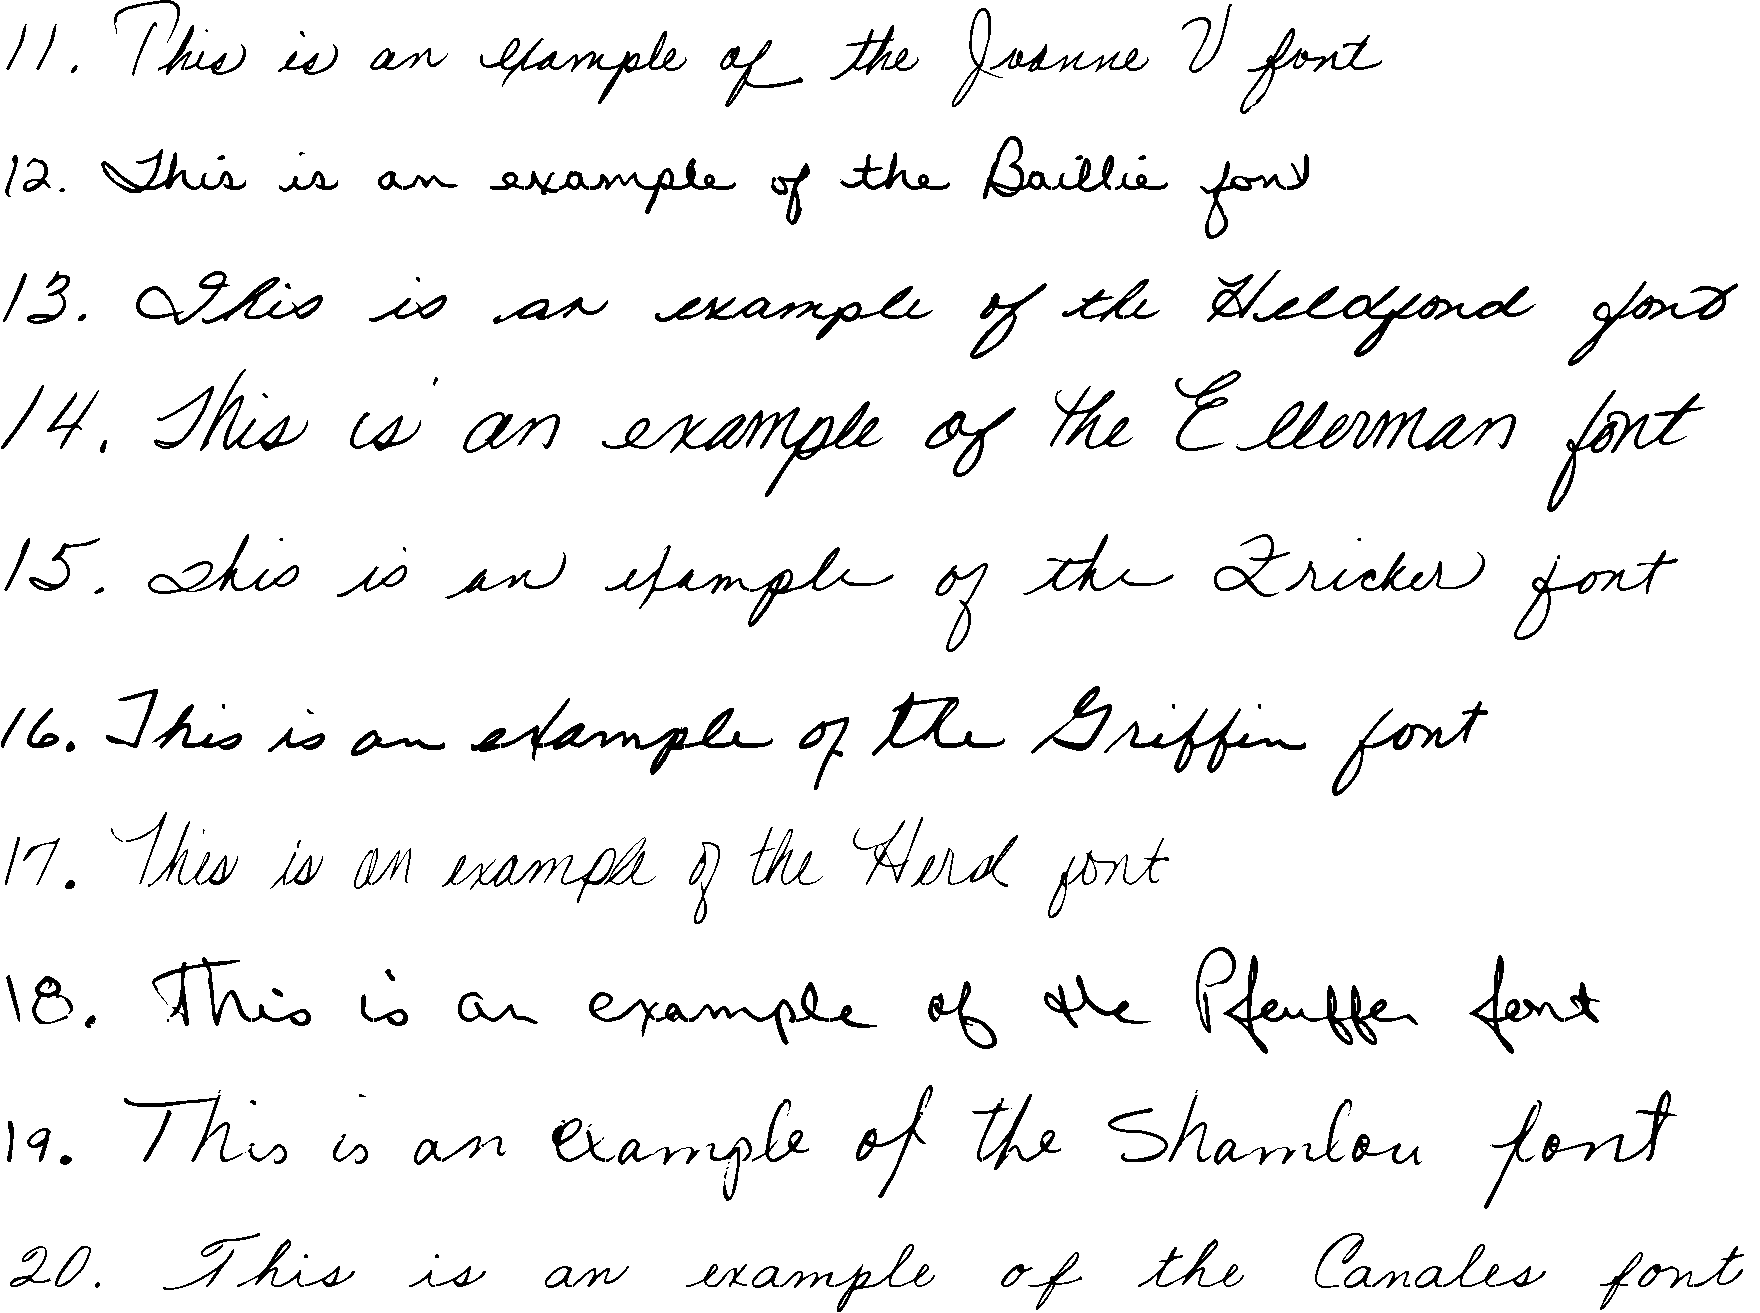 11. This is an example of the Joanne V font
12. This is an example of the Baillie font
13. This is an example of the Heldfond font
14. This is an example of the Ellerman font
15. This is an example of the Zricker font
16. This is an example of the Griffin font
17. This is an example of the Herd font
18. This is an example of the Pfeuffer font
19. This is an example of the Shamlou font
20. This is an example of the Canales font